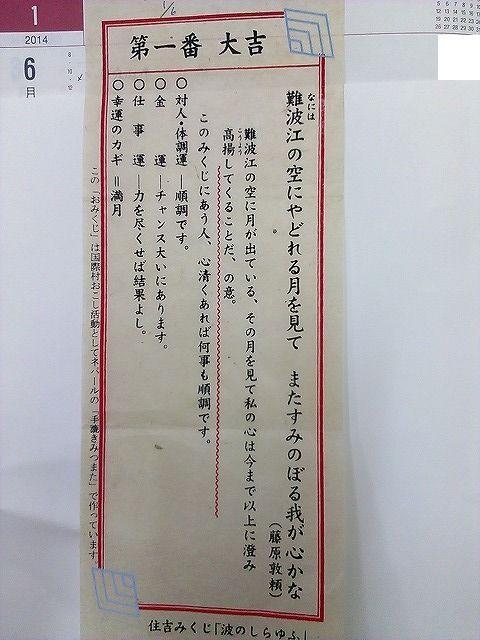 1
2014
6
月
1/6
第一番 大吉
難波江の空にやどれる月を見て またすみのぼる我が心かな
なには
(藤原敦頼)
難波江の空に月が出ている、その月を見て私の心は今まで以上に澄み
高揚してくることだ、の意。
こうよう
このみくじにあう人、心清くあれば何事も順調です。
○対人・体調運 ―順調です。
○金運 ―チャンス大いにあります。
○仕事運 ―力を尽くせば結果よし。
○幸運のカギ=満月
この「おみくじ」は国際村おこし活動としてネパールの「手漉きみつまた」で作っています。
住吉みくじ「波のしらゆふ」